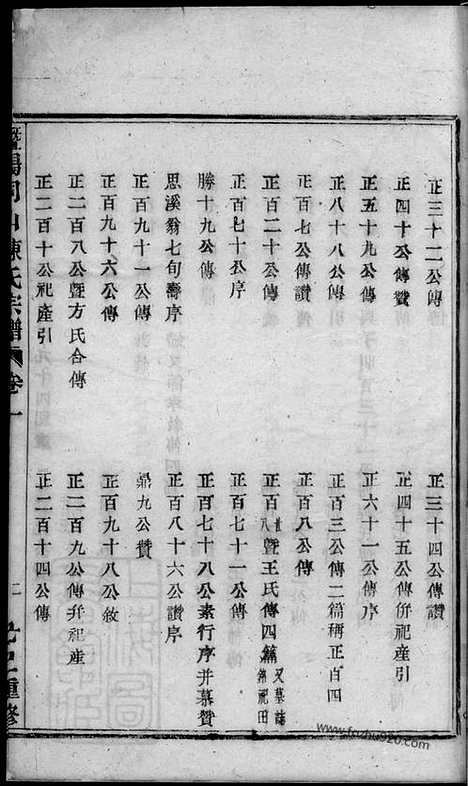 正三十二公傳
正三十四公傳讚
正四十公傳贊
正四十五公傳併祀產引
正五十九公傳
正六十一公傳序
正八十八公傳
正百三公傳二篇稱正百四
正百七公傳讚
正百八公傳
正百二十公傳
正百廿八暨王氏傳四篇又墓誌祭祀田
正百七十公序
正百七十一公傳
勝十九公傳
正百七十八公素行序并墓贊
思溪翁七旬壽序
正百八十六公讚序
正百九十一公傳
鼎九公贊
正百九十六公傳
正百九十八公敘
正二百八公暨方氏合傳
正二百九公傳并祀產
正二百十公祀產引
正二百十四公傳
暨陽同山陳氏宗譜 卷一 二 重修
www.fuzhu920.com